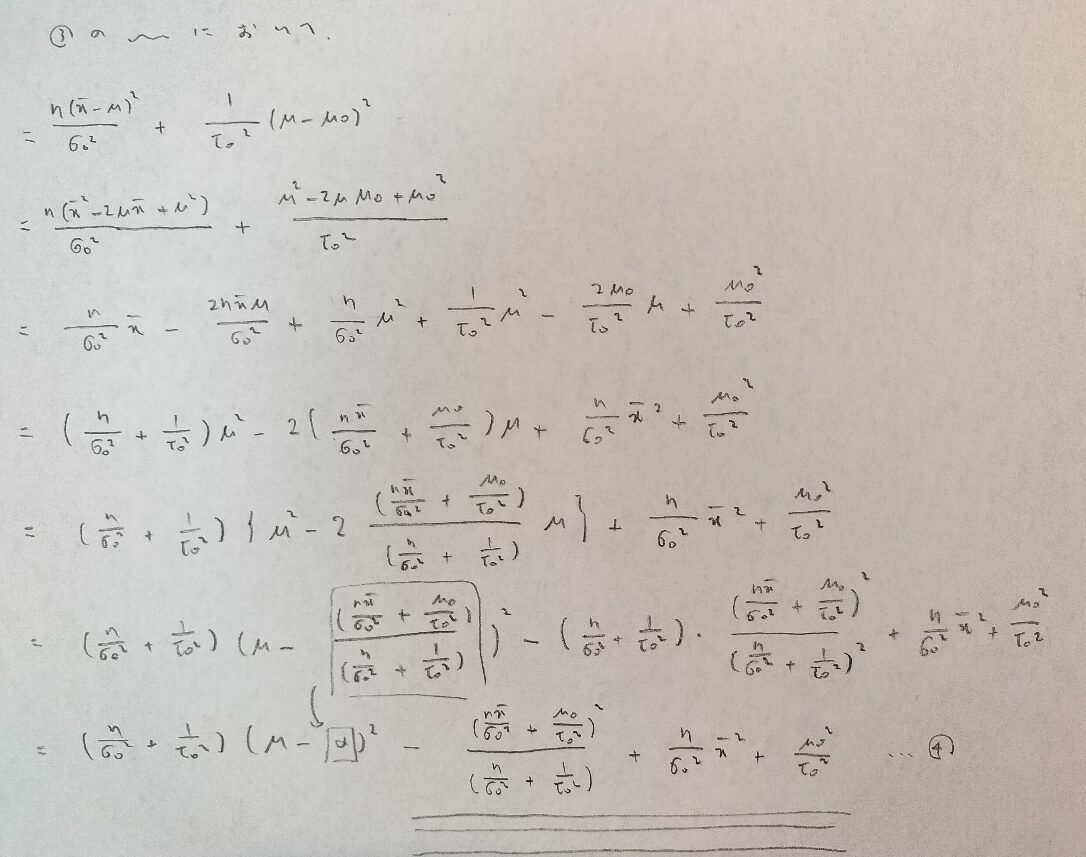 ③の〜〜において、
= n(x̄-μ)²/σ₀² + 1/τ₀² (μ-μ₀)²
= n(x̄²-2μx̄+μ²)/σ₀² + (μ²-2μμ₀+μ₀²)/τ₀²
= n/σ₀² x̄ - 2nx̄μ/σ₀² + n/σ₀² μ² + 1/τ₀² μ² - 2μ₀/τ₀² μ + μ₀²/τ₀²
= (n/σ₀² + 1/τ₀²)μ² - 2(nx̄/σ₀² + μ₀/τ₀²)μ + n/σ₀² x̄² + μ₀²/τ₀²
= (n/σ₀² + 1/τ₀²){μ² - 2 (nx̄/σ₀² + μ₀/τ₀²)/(n/σ₀² + 1/τ₀²) μ} + n/σ₀² x̄² + μ₀²/τ₀²
= (n/σ₀² + 1/τ₀²)(μ - (nx̄/σ₀² + μ₀/τ₀²)/(n/σ₀² + 1/τ₀²))² - (n/σ₀² + 1/τ₀²)・(nx̄/σ₀² + μ₀/τ₀²)²/(n/σ₀² + 1/τ₀²)² + n/σ₀² x̄² + μ₀²/τ₀²
= (n/σ₀² + 1/τ₀²)(μ - α)² - (nx̄/σ₀² + μ₀/τ₀²)²/(n/σ₀² + 1/τ₀²) + n/σ₀² x̄² + μ₀²/τ₀² … ④